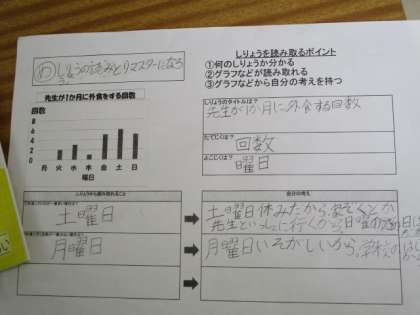 め しりょうの読みとりマスターになろう
しりょうを読み取るポイント
①何のしりょうか分かる
②グラフなどが読み取れる
③グラフなどから自分の考えを持つ
先生が1か月に外食をする回数
回数
8
6
4
2
0
月 火 水 木 金 土 日
曜日
しりょうのタイトルは?
先生が1か月に外食する回数
たてじくは?
回数
よこじくは?
曜日
しりょうから読み取れること
自分の考え
土曜日
土曜日休みだから家ぞくとか
先生といっしょに行くから日曜の
月曜日
月曜日いそがしいから。学校の
い